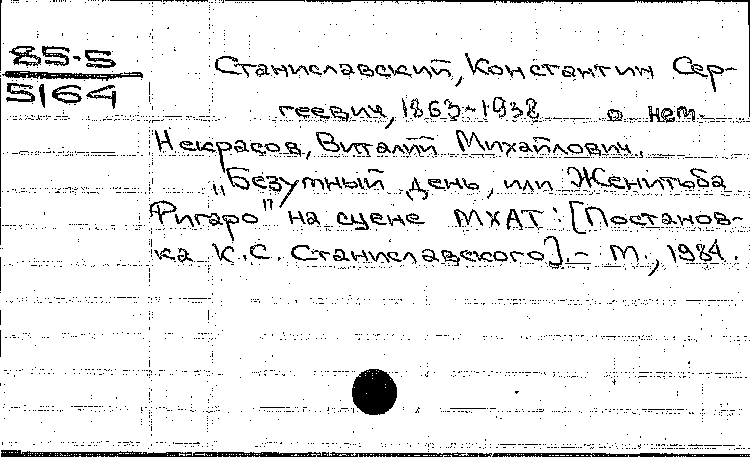 85-5
5164
Станиславский, Константин Сер-
геевич, 1863-1938 о нем.
Некрасов, Виталий Михайлович.
„Безумный день, или Женитьба
Фигаро" на сцене МХАТ: [Постанов-
ка К.С. Станиславского].- М., 1984.